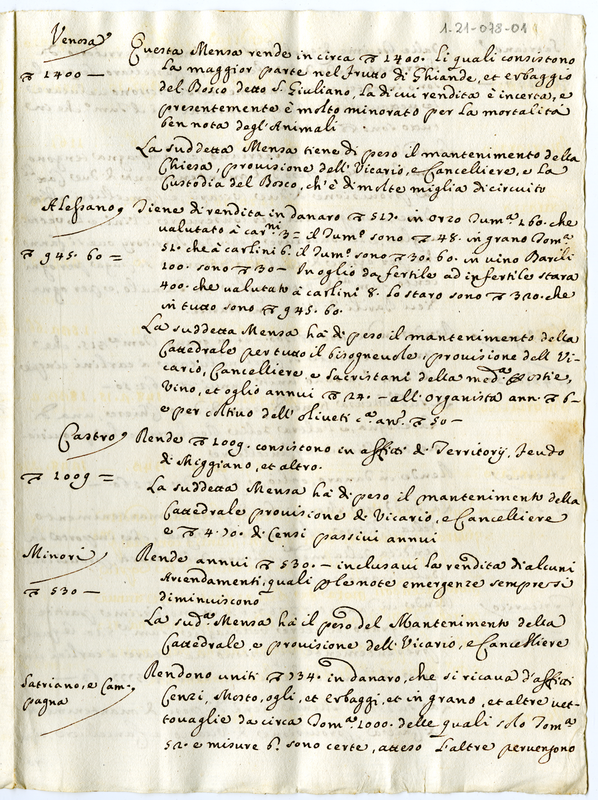 1-21-078-01
Venosa
Questa Mensa rende in circa D 1400. li quali consistono
D 1400 —
la maggior parte nel frutto di Ghiande, et erbaggio
del Bosco detto S. Giuliano, la di cui rendita è incerta, e
presentemente è molto minorato per la mortalità
ben nota degl'Animali
La suddetta Mensa tiene di peso il mantenimento della
Chiesa, provisione dell'Vicario, e Cancelliere, e la
Custodia del Bosco, ch'è di molte miglia di circuito
Alessano
Tiene di rendita in danaro D 517. in orzo Tum.a 160. che
valutato à car.ni 3 = il Tum.o sono D 48. in grano Tom.a
D 945. 60 =
51. che à carlini 6. il Tum.o sono D 30. 60. in vino Barili
100. sono D 30 — In oglio da fertile ad infertile stara
400. che valutato à carlini 8. lo staro sono D 320. che
in tutto sono D 945. 60.
La suddetta Mensa hà di peso il mantenimento della
Cattedrale per tutto il bisognevole, provisione dell Vi-
cario, Cancelliere e Sacristani della med.a Ostie,
Vino, et oglio annui D 24. — all'organista ann. D 6 —
e per coltivo dell'oliveti c.a an.i D 50 —
Castro
Rende D 1009. consistono in affitti di Territorij, feudo
di Miggiano, et altro.
D 1009 =
La suddetta Mensa hà di peso il mantenimento della
Cattedrale provisione di Vicario, e Cancelliere
e D 4. 70. di Censi passivi annui
Minori
Rende annui D 530. — inclusavi la rendita di alcuni
Arrendamenti, quali p le note emergenze sempre si
D 530 —
diminuiscono
La sud.a Mensa hà il peso del Mantenimento della
Cattedrale, e provisione dell'Vicario, e Cancelliere
Satriano, e Cam-
pagna
Rendono uniti D 734. in danaro, che si ricava d'affitti
Cenzi, Mosto, ogli, et erbaggi, et in grano, et altre vet-
tovaglie da circa Tom.a 1000. delle quali solo Tom.a
52. e misure 6. sono certe, atteso l'altre pervengono